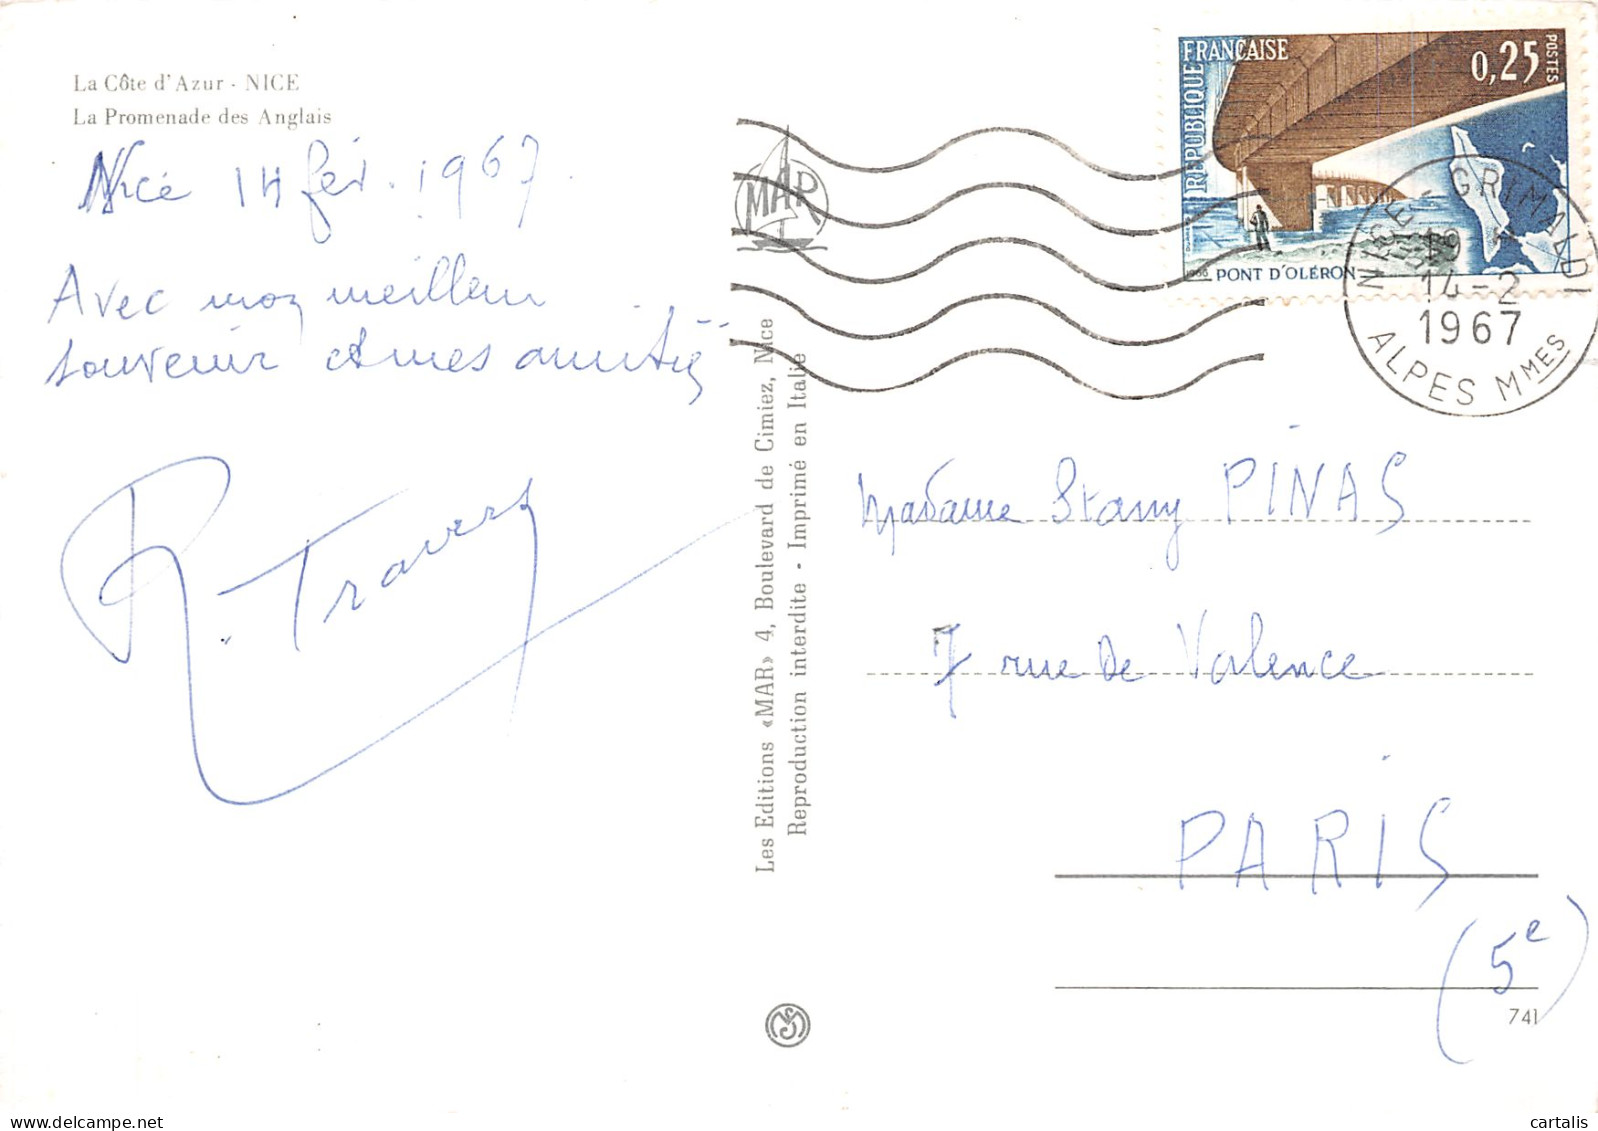 La Côte d'Azur - NICE
La Promenade des Anglais
Nice 14 fév. 1967
Avec mon meilleur
souvenir et mes amitiés
R. Travers
MAR
Les Editions «MAR» 4, Boulevard de Cimiez, Nice
Reproduction interdite - Imprimé en Italie
REPUBLIQUE FRANÇAISE
0,25 POSTES
1966 PONT D'OLÉRON
NICE - GRIMALDI
14-2
1967
ALPES MMES
Madame Stany PINAS
7 rue de Valence
PARIS
(5e)
741
delcampe.net
cartalis